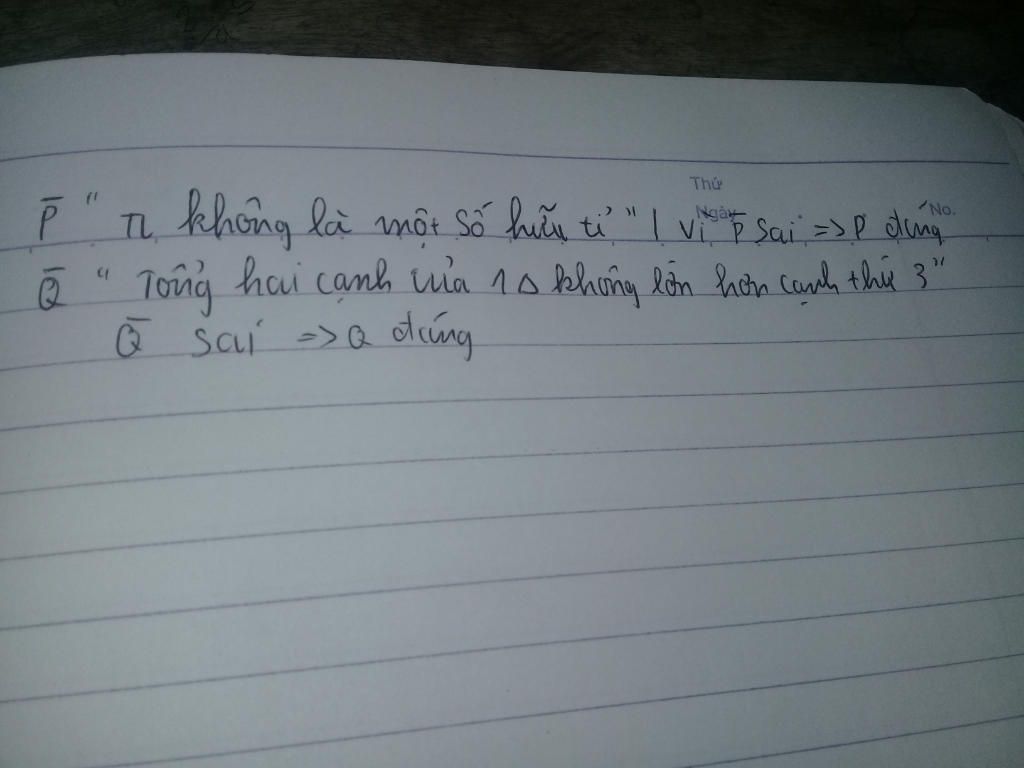 Thứ
Ngày No.
P̄ " π không là một số hữu tỉ " | Vì P̄ sai => P đúng
Q̄ " Tổng hai cạnh của 1 Δ không lớn hơn cạnh thứ 3 "
Q̄ sai => Q đúng